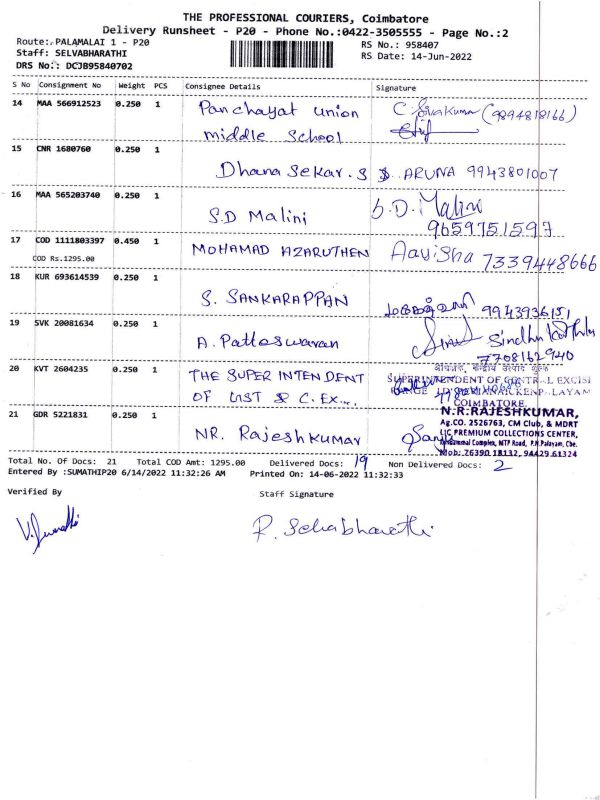 THE PROFESSIONAL COURIERS, Coimbatore
Delivery Runsheet - P20 - Phone No.:0422-3505555 - Page No.:2
Route: PALAMALAI 1 - P20
RS No.: 958407
Staff: SELVABHARATHI
RS Date: 14-Jun-2022
DRS No.: DCJB95840702
S No Consignment No Weight PCS Consignee Details Signature
14 MAA 566912523 0.250 1 Panchayat union C. Sivakumar (9894818166)
middle school
15 CNR 1680760 0.250 1 Dhana sekar. S S. ARUNA 9943801007
16 MAA 565203740 0.250 1 S.D Malini S.D. Malini
9659751597
17 COD 1111803397 0.450 1 MOHAMAD AZARUTHEN Aavisha 7339448666
COD Rs.1295.00
18 KUR 693614539 0.250 1 S. SANKARAPPAN 9943936151
19 SVK 20081634 0.250 1 A. Patteswaran Sindhu
7708162940
20 KVT 2604235 0.250 1 THE SUPER INTENDENT
OF GST & C. Ex...
SUPERINTENDENT OF CENTRAL EXCISE
COIMBATORE.
21 GDR 5221831 0.250 1 NR. Rajeshkumar
N.R.RAJESHKUMAR,
Ag.CO. 2526763, CM Club, & MDRT
LIC PREMIUM COLLECTIONS CENTER,
Complex, MTP Road, P.N.Palayam, Cbe.
Mob: 76390 18132, 94429 61324
Total No. Of Docs: 21 Total COD Amt: 1295.00 Delivered Docs: 19 Non Delivered Docs: 2
Entered By :SUMATHIP20 6/14/2022 11:32:26 AM Printed On: 14-06-2022 11:32:33
Verified By Staff Signature
R. Selvabharathi